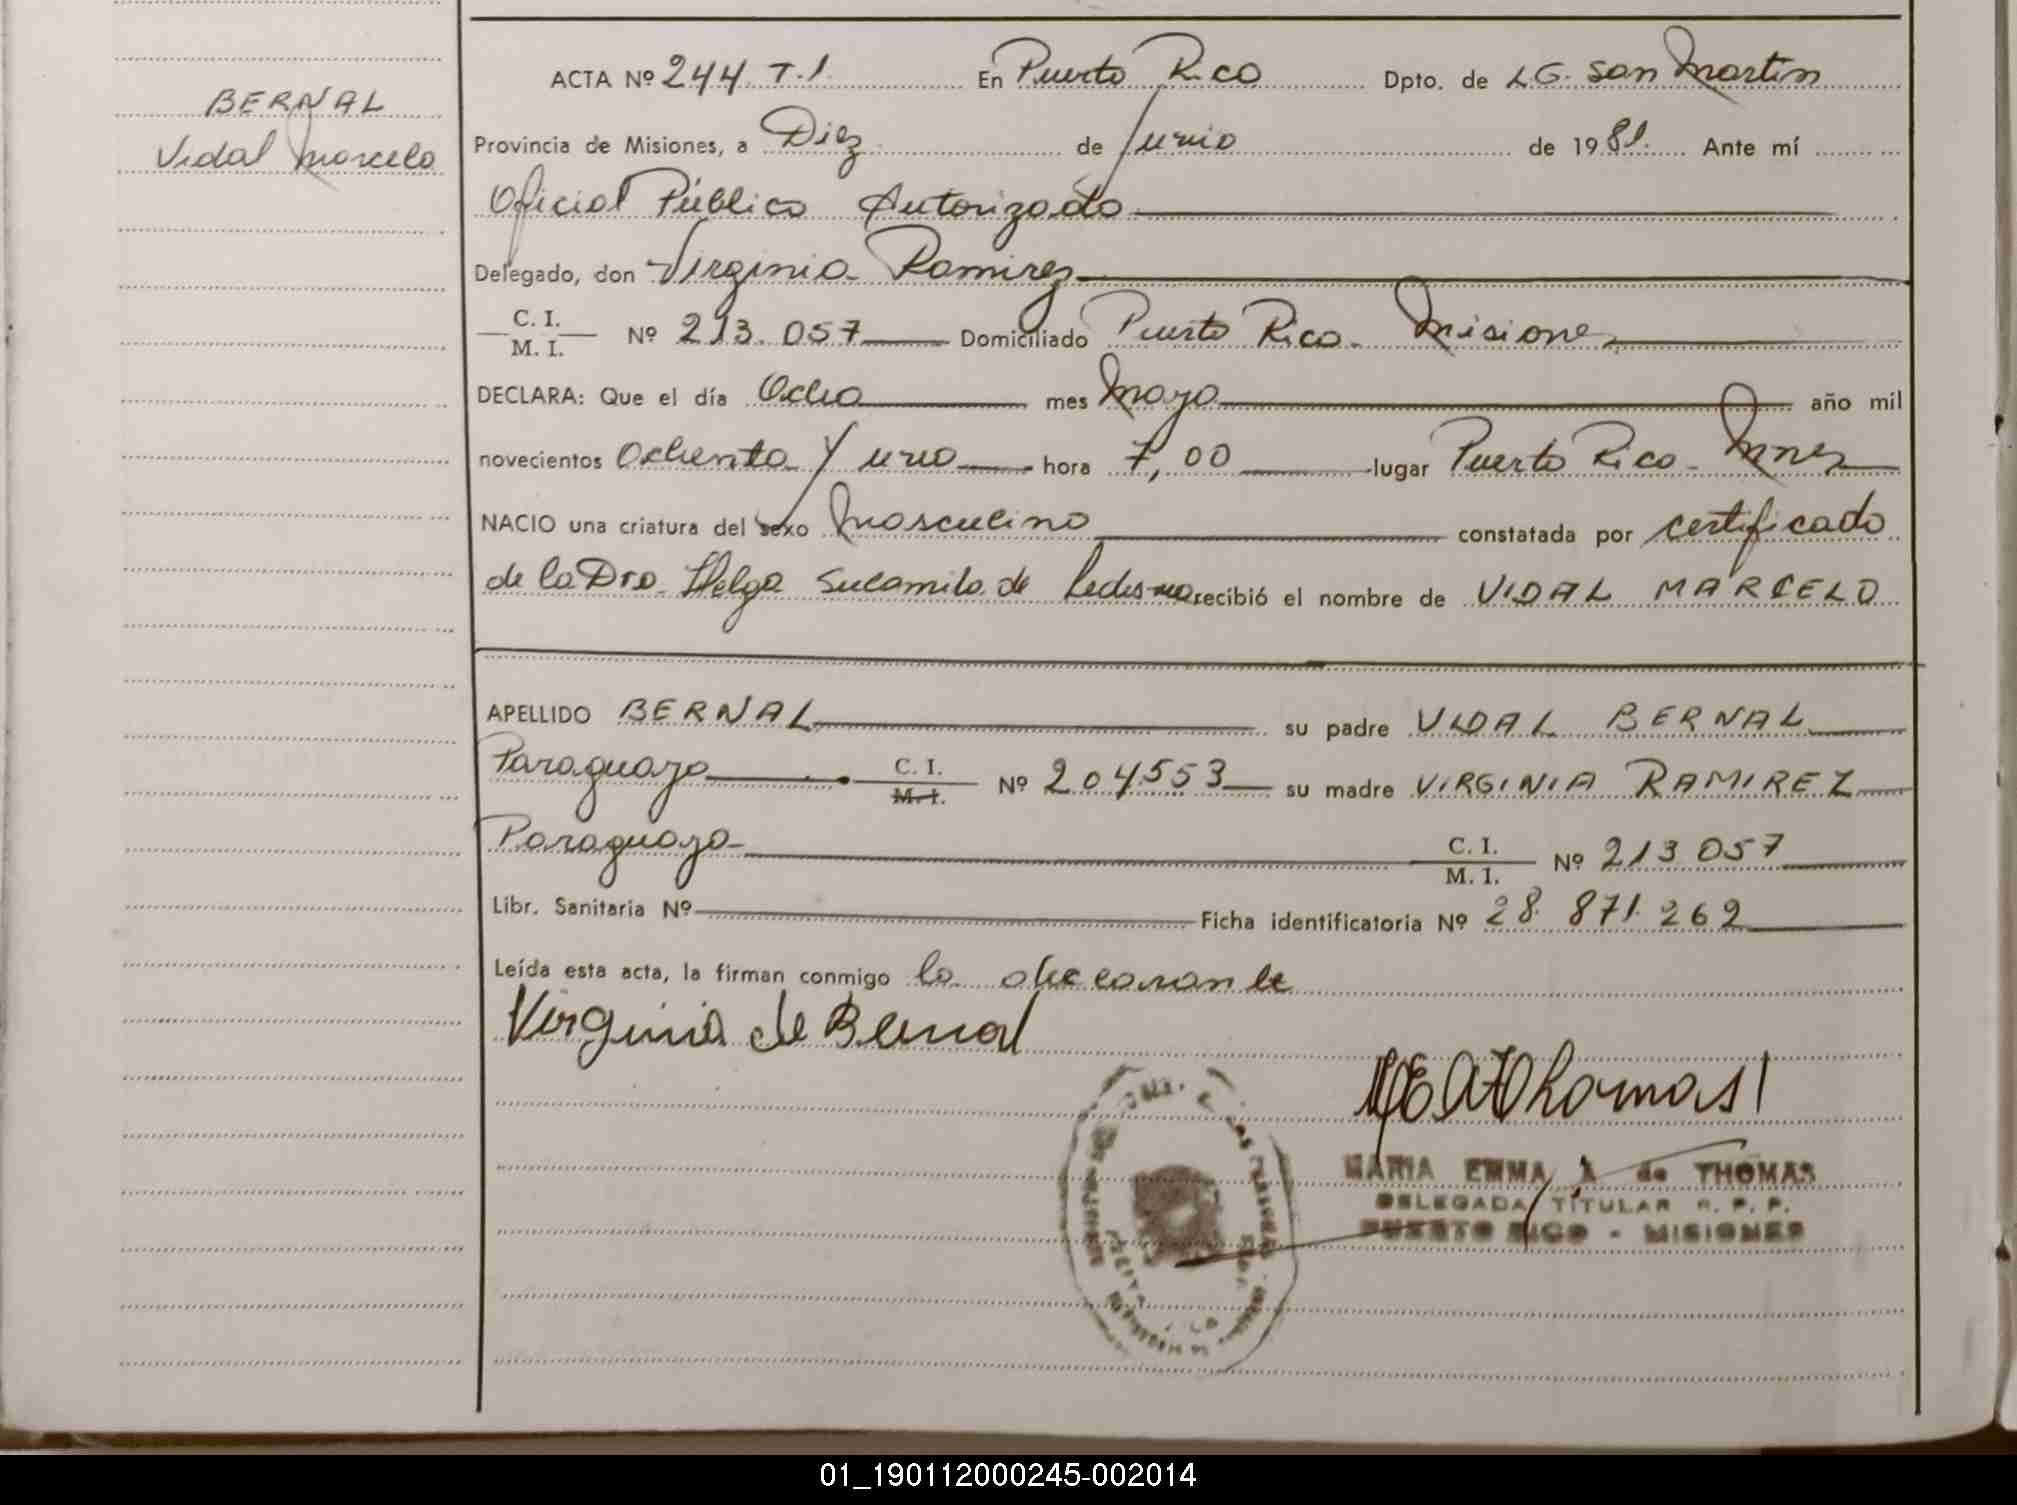 BERNAL
Vidal Marcelo
ACTA Nº 244 T.1. En Puerto Rico Dpto. de L.G. San Martín
Provincia de Misiones, a Diez de Junio de 1981. Ante mí
Oficial Público Autorizado
Delegado, don Virginia Ramirez
C. I. / M. I. Nº 213.057 Domiciliado Puerto Rico. Misiones
DECLARA: Que el día Ocho mes Mayo año mil
novecientos Ochenta y uno hora 7,00 lugar Puerto Rico - Mnes
NACIO una criatura del sexo Masculino constatada por certificado
de la Dra. Helga Sucamilo de Ledesma recibió el nombre de VIDAL MARCELO
APELLIDO BERNAL su padre VIDAL BERNAL
Paraguayo C. I. / M. I. Nº 204553 su madre VIRGINIA RAMIREZ
Paraguaya C. I. / M. I. Nº 213 057
Libr. Sanitaria Nº Ficha identificatoria Nº 28.871.262
Leída esta acta, la firman conmigo la declarante
Virginia de Bernal
MEAThomas
MARIA EMMA A de THOMAS
DELEGADA TITULAR R. P. P.
PUERTO RICO - MISIONES
01_190112000245-002014